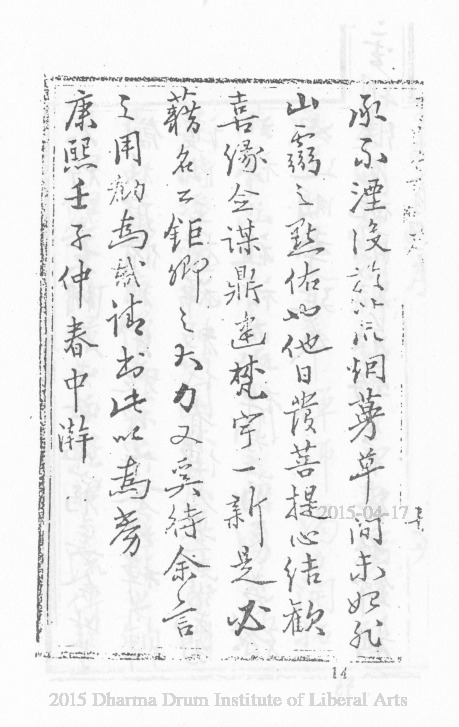 承不湮沒於荒烟蔓草間未始非
山靈之默佑也他日發菩提心結歡
喜緣仝謀鼎建梵宇一新是必
藉名公鉅卿之大力又奚待余言
之用勸為哉請書此以為劵
康熙壬子仲春中澣
2015-04-17
14
2015 Dharma Drum Institute of Liberal Arts